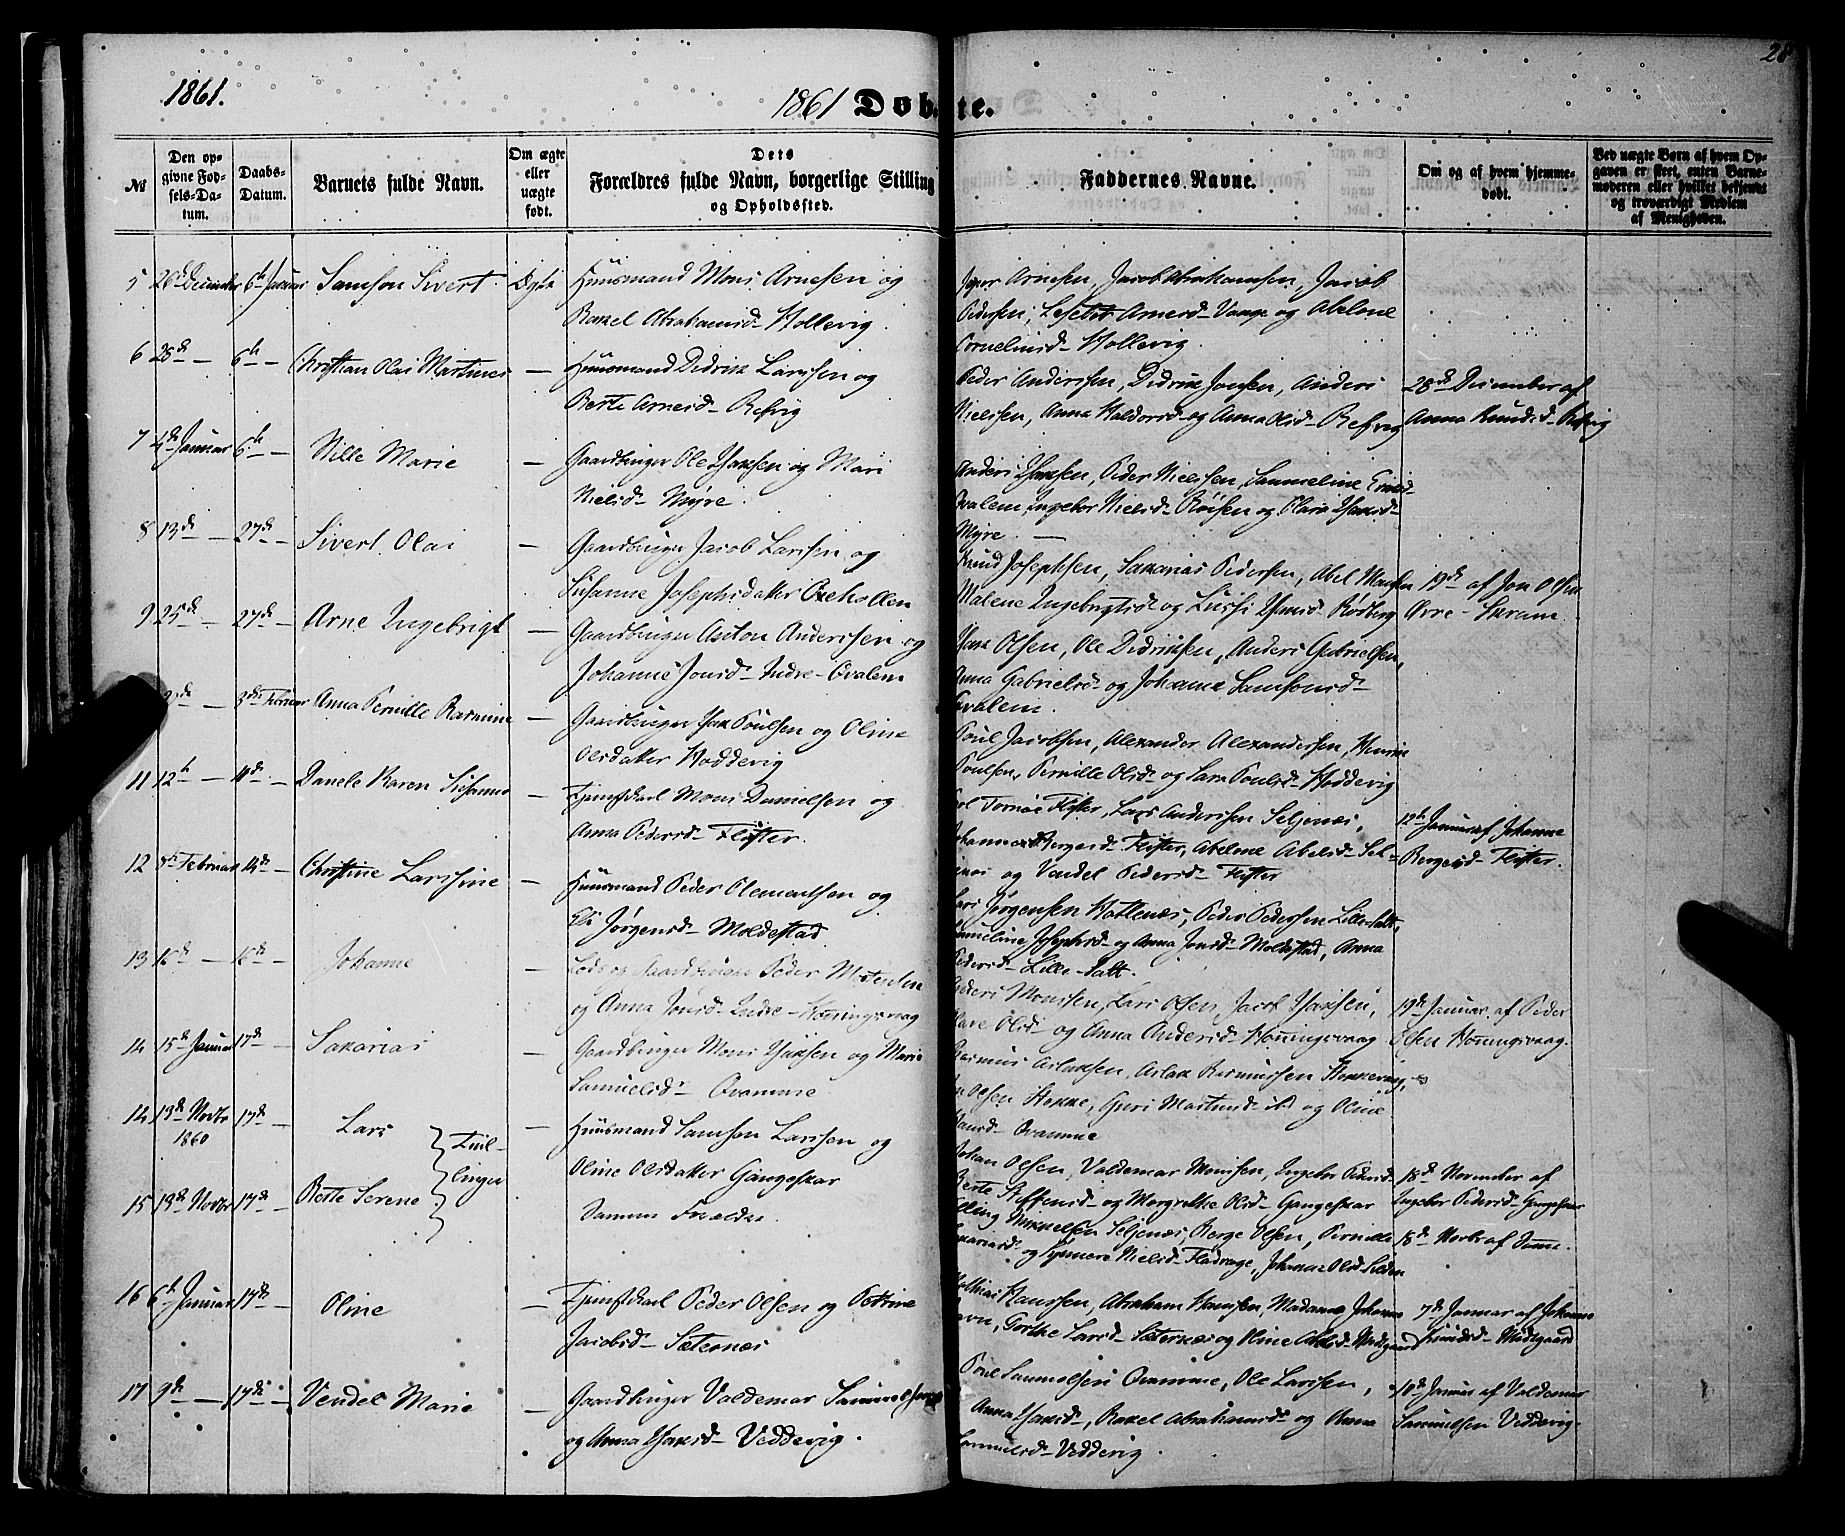 1861.
1861 Døb.
te.
28
№
Den op-
givne Fød-
sels-Da-
tum.
Daabs-
Datum.
Barnets fulde Navn.
Om ægte
eller
uægte
født.
Dets
Forældres fulde Navn, borgerlige Stilling
og Opholdssted.
Faddernes Navne.
Om og af hvem hjemme-
døbt.
Ved uægte Børn af hvem Op-
gaven er skeet, enten Barne-
moderen eller hvilket bekjendt
og troværdigt Medlem
af Menigheden.
5 26de December 6th Januar Samson Sivert Huusmand Mons Arnesen og
Rakel Abrahamsd- Hollevig.
Arnesen, Jacob Abrahamsen, Jacob
Pedersen, Arnesd- Vaage og Abelone
Corneliusd- Hollevig
6 28de — 6th — Christian Olai Martines — Huusmand Didrik Larssen og
Berte Arnesd- Refvig
Peder Anderssen, Didrik Jonsen, Anders
Nielssen, Anna Haldorsd- og Anna Olsd- Refvig
28de December af
Anna Knudsd- Refvig
7 4de Januar 6th — Nille Marie — Gaardbruger Ole Isaksen og Mari
Nielsd- Myre.
Anders Isaksen, Peder Nielssen, Sammeline
Ingebor Nielsd- og Isaksd-
Myre. —
8 13de — 27de — Sivert Olai — Gaardbruger Jacob Larssen og
Susanne Josephsdatter Oxehollen
Knud Josephsen, Sakarias Pedersen, Abel
Malene Ingebrigtsd- og Lussi Isaksd- Rødberg
19de af Jon Olsen
9 25de — 27de — Arne Ingebrigt — Gaardbruger Anton Anderssen og
Johanne Jonsd- Indre-Qvalem
Isak Olsen, Ole Didriksen, Anders Gabrielsen,
Anna Gabrielsd- og Johanne Samsonsd-
Qvalem.
— 3de Februar Anna Pernille Rasmine — Gaardbruger Isak Poulsen og Oline
Olsdatter Hoddevig
Poul Jacobsen, Alexander Alexandersen, Henrik
Poulsen, Pernille Olsd- og Sara Poulsd- Hoddevig
11 12th — 11de — Danele Karen Susanne — Mons Danielsen og
Anna Pedersd- Flister.
Tornøe Flister, Lars Anderssen Seljenæs,
Johanne Bergesd- Flister, Abelone Abelsd- Sel-
og Vendel Pedersd- Flister
12th Januar af Johanne
Bergesd- Flister.
12 8de Februar 14de — Christine Larssine — Huusmand Peder Clementsen og
Jørgensd- Moldestad
Lars Jørgensen, Peder Pedersen Lille-Salt,
Josephsd- og Anna Jonsd- Moldestad, Anna
Pedersd- Lille-Salt.
13 16de — 16de — Johanne — Lods og Gaardbruger Peder
og Anna Jonsd- Indre-Honningsvaag
Anders Monssen, Lars Olsen, Jacob Isaksen,
Olsd- og Anna Andersd- Honningsvaag
19de Januar af Peder
Olsen Honningsvaag.
14 15de Januar 17de — Sakarias — Gaardbruger Mons Isaksen og Marie
Samuelsd- Qvamme
Rasmus Arlaksen, Arlak Rasmussen
Olsen Hokke, Guri og Oline
Qvamme
14 13de Novbr
1860 17de — Lars Tvil-
linger — Huusmand Samson Larssen og
Oline Olsdatter Gangeskar
Johan Olsen, Valdemar Monssen, Ingebor Pedersd-
Berte Steffensd- og Margrethe Olsd- Gangeskar
18de November af
Ingebor Pedersd- Gangeskar
15 13de Novbr 17de — Berte Serene Samme Forældre.
Seljenæs, Berge Olsen, Pernille
og Synneve Nielsd- Johanne Olsd-
18de Novbr af Samme.
16 6th Januar 17de — Oline — Peder Olsen og Petrine
Jacobsd- Sæternæs
Mathias Hanssen, Abraham Hanssen, Madame Johanne
Larsd- Sæternæs og Oline
7de Januar af Johanne
Knudsd- Midtgaard
17 9de — 17de — Vendel Marie — Gaardbruger Valdemar Samuelsen
og Anna Isaksd- Veddevig.
Poul Sammelsen Qvamme, Ole Larssen,
Anna Isaksd-, Rakel Abrahamsd- og Anna
Samuelsd- Veddevig.
10de Januar af Valdemar
Samuelsen Veddevig.